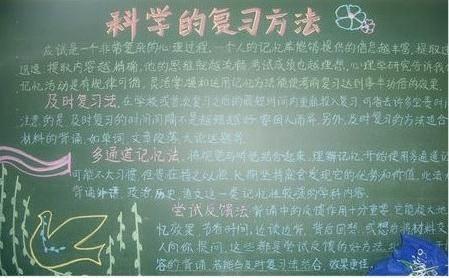 科学的复习方法
应试是一个非常复杂的心理过程,一个人的记忆库能够提供的信息越丰富,提取过
迅速,提取内容越精确,他的思维就越流畅,考试成绩也越理想,心理学研究告诉我们
记忆活动是有规律可循,灵活掌握和运用记忆方法能使考前复习达到事半功倍的效果。
及时复习法,在学校或首次复习之后的最短时间内重新投入复习,可省去许多宝贵时
注意的是及时复习的时间间隔不是越短越好,要因人而异,另外,及时复习的方法适合
材料的背诵,如单词,文章段落,大论述题等
多通道记忆法,将视觉与听觉结合起来,理解记忆,开始使用多通道记
可能不大习惯,但贵在持之以恒,长期坚持就会发现它的优势和价值,此法
背诵外语,政治,历史,语文这一类记忆性较强的学科内容。
尝试反馈法 背诵中的反馈作用十分重要,它能极大地
忆效果,节省时间,近读边背,背后回想,或想象将材料交
人向你提问,这些都是尝试反馈的好方法
容的背诵,若能与及时复习法结合,效果更佳